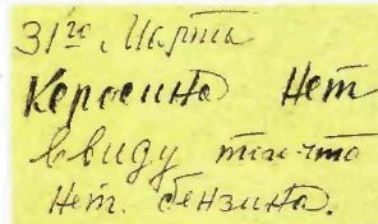 31го, Марта
Керосина Нет
ввиду того что
Нет. бензина.